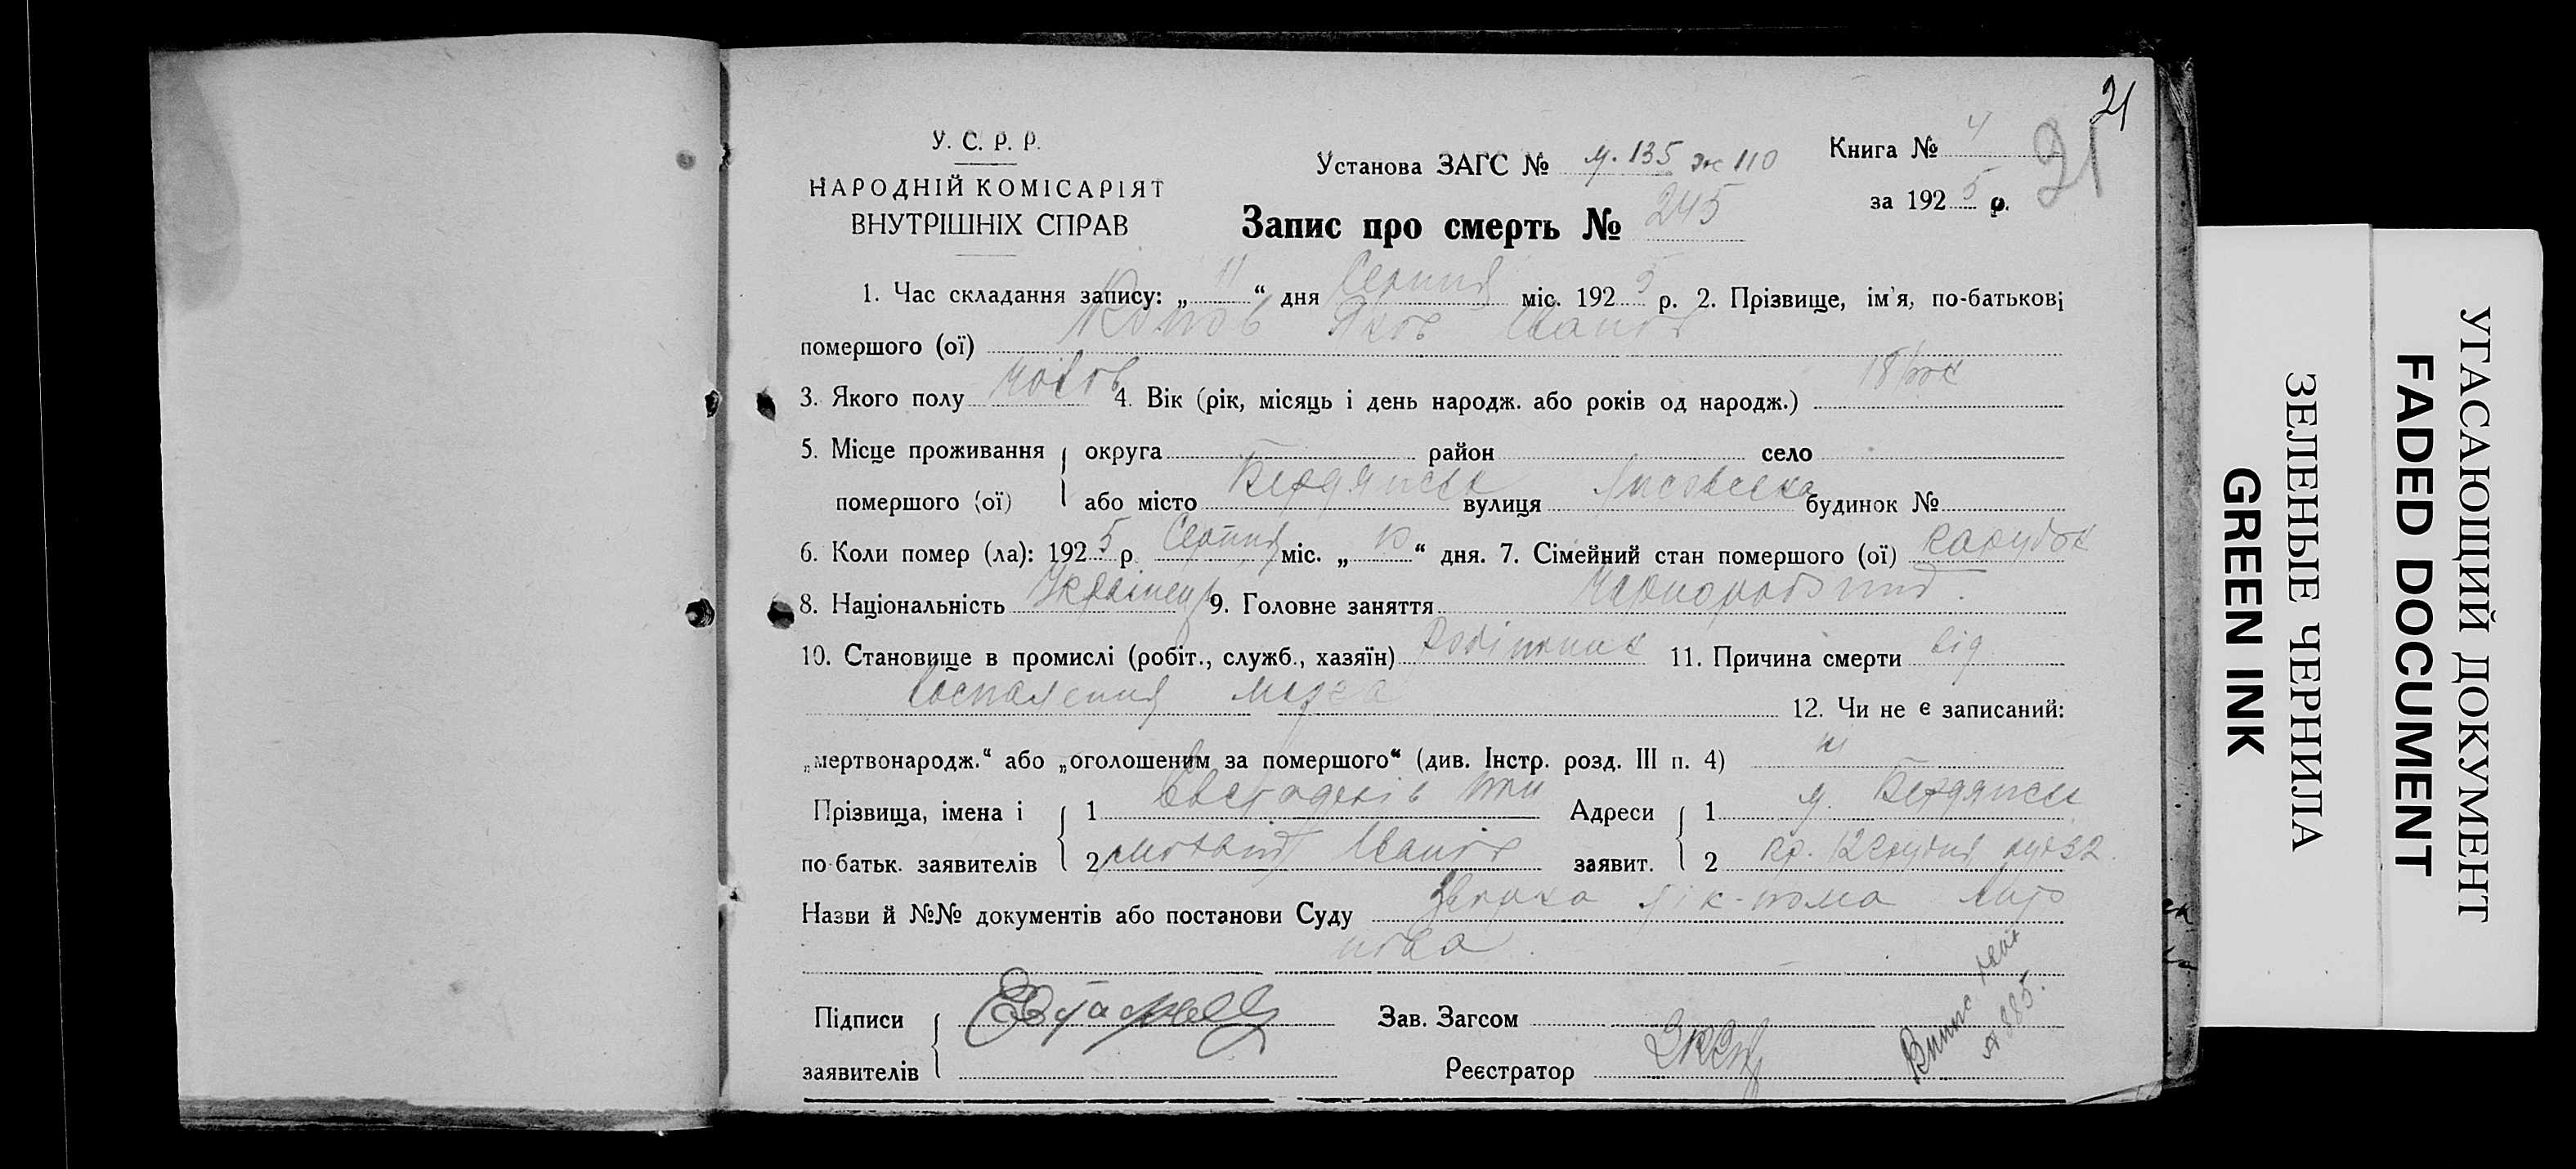 21
У. С. Р. Р.
НАРОДНІЙ КОМІСАРІЯТ
ВНУТРІШНІХ СПРАВ
Установа ЗАГС № ч. 135 ж 110
Книга № 4
за 1925 р.
21
Запис про смерть № 245
1. Час складання запису: „11“ дня Серпня міс. 1925 р. 2. Прізвище, ім'я, по-батькові
помершого (ої) Яков Іванов
3. Якого полу чолов 4. Вік (рік, місяць і день народж. або років од народж.) 18
5. Місце проживання помершого (ої) { округа район село
або місто Бердянськ вулиця будинок №
6. Коли помер (ла): 1925 р. Серпня міс. „10“ дня. 7. Сімейний стан помершого (ої) парубок
8. Національність Українець 9. Головне заняття Чорноробітник.
10. Становище в промислі (робіт., служб., хазяїн) Робітник 11. Причина смерти від
воспалення мозга
12. Чи не є записаний:
„мертвонародж.“ або „оголошеним за помершого“ (див. Інстр. розд. III п. 4) ні
Прізвища, імена і по-батьк. заявителів { 1
2 Іванов
Адреси заявит. { 1 м. Бердянськ
2 32.
Назви й №№ документів або постанови Суду лік-пома
Підписи заявителів
Зав. Загсом
Реєстратор
Випис
№ 885.
УГАСАЮЩИЙ ДОКУМЕНТ
FADED DOCUMENT
ЗЕЛЕНЫЕ ЧЕРНИЛА
GREEN INK